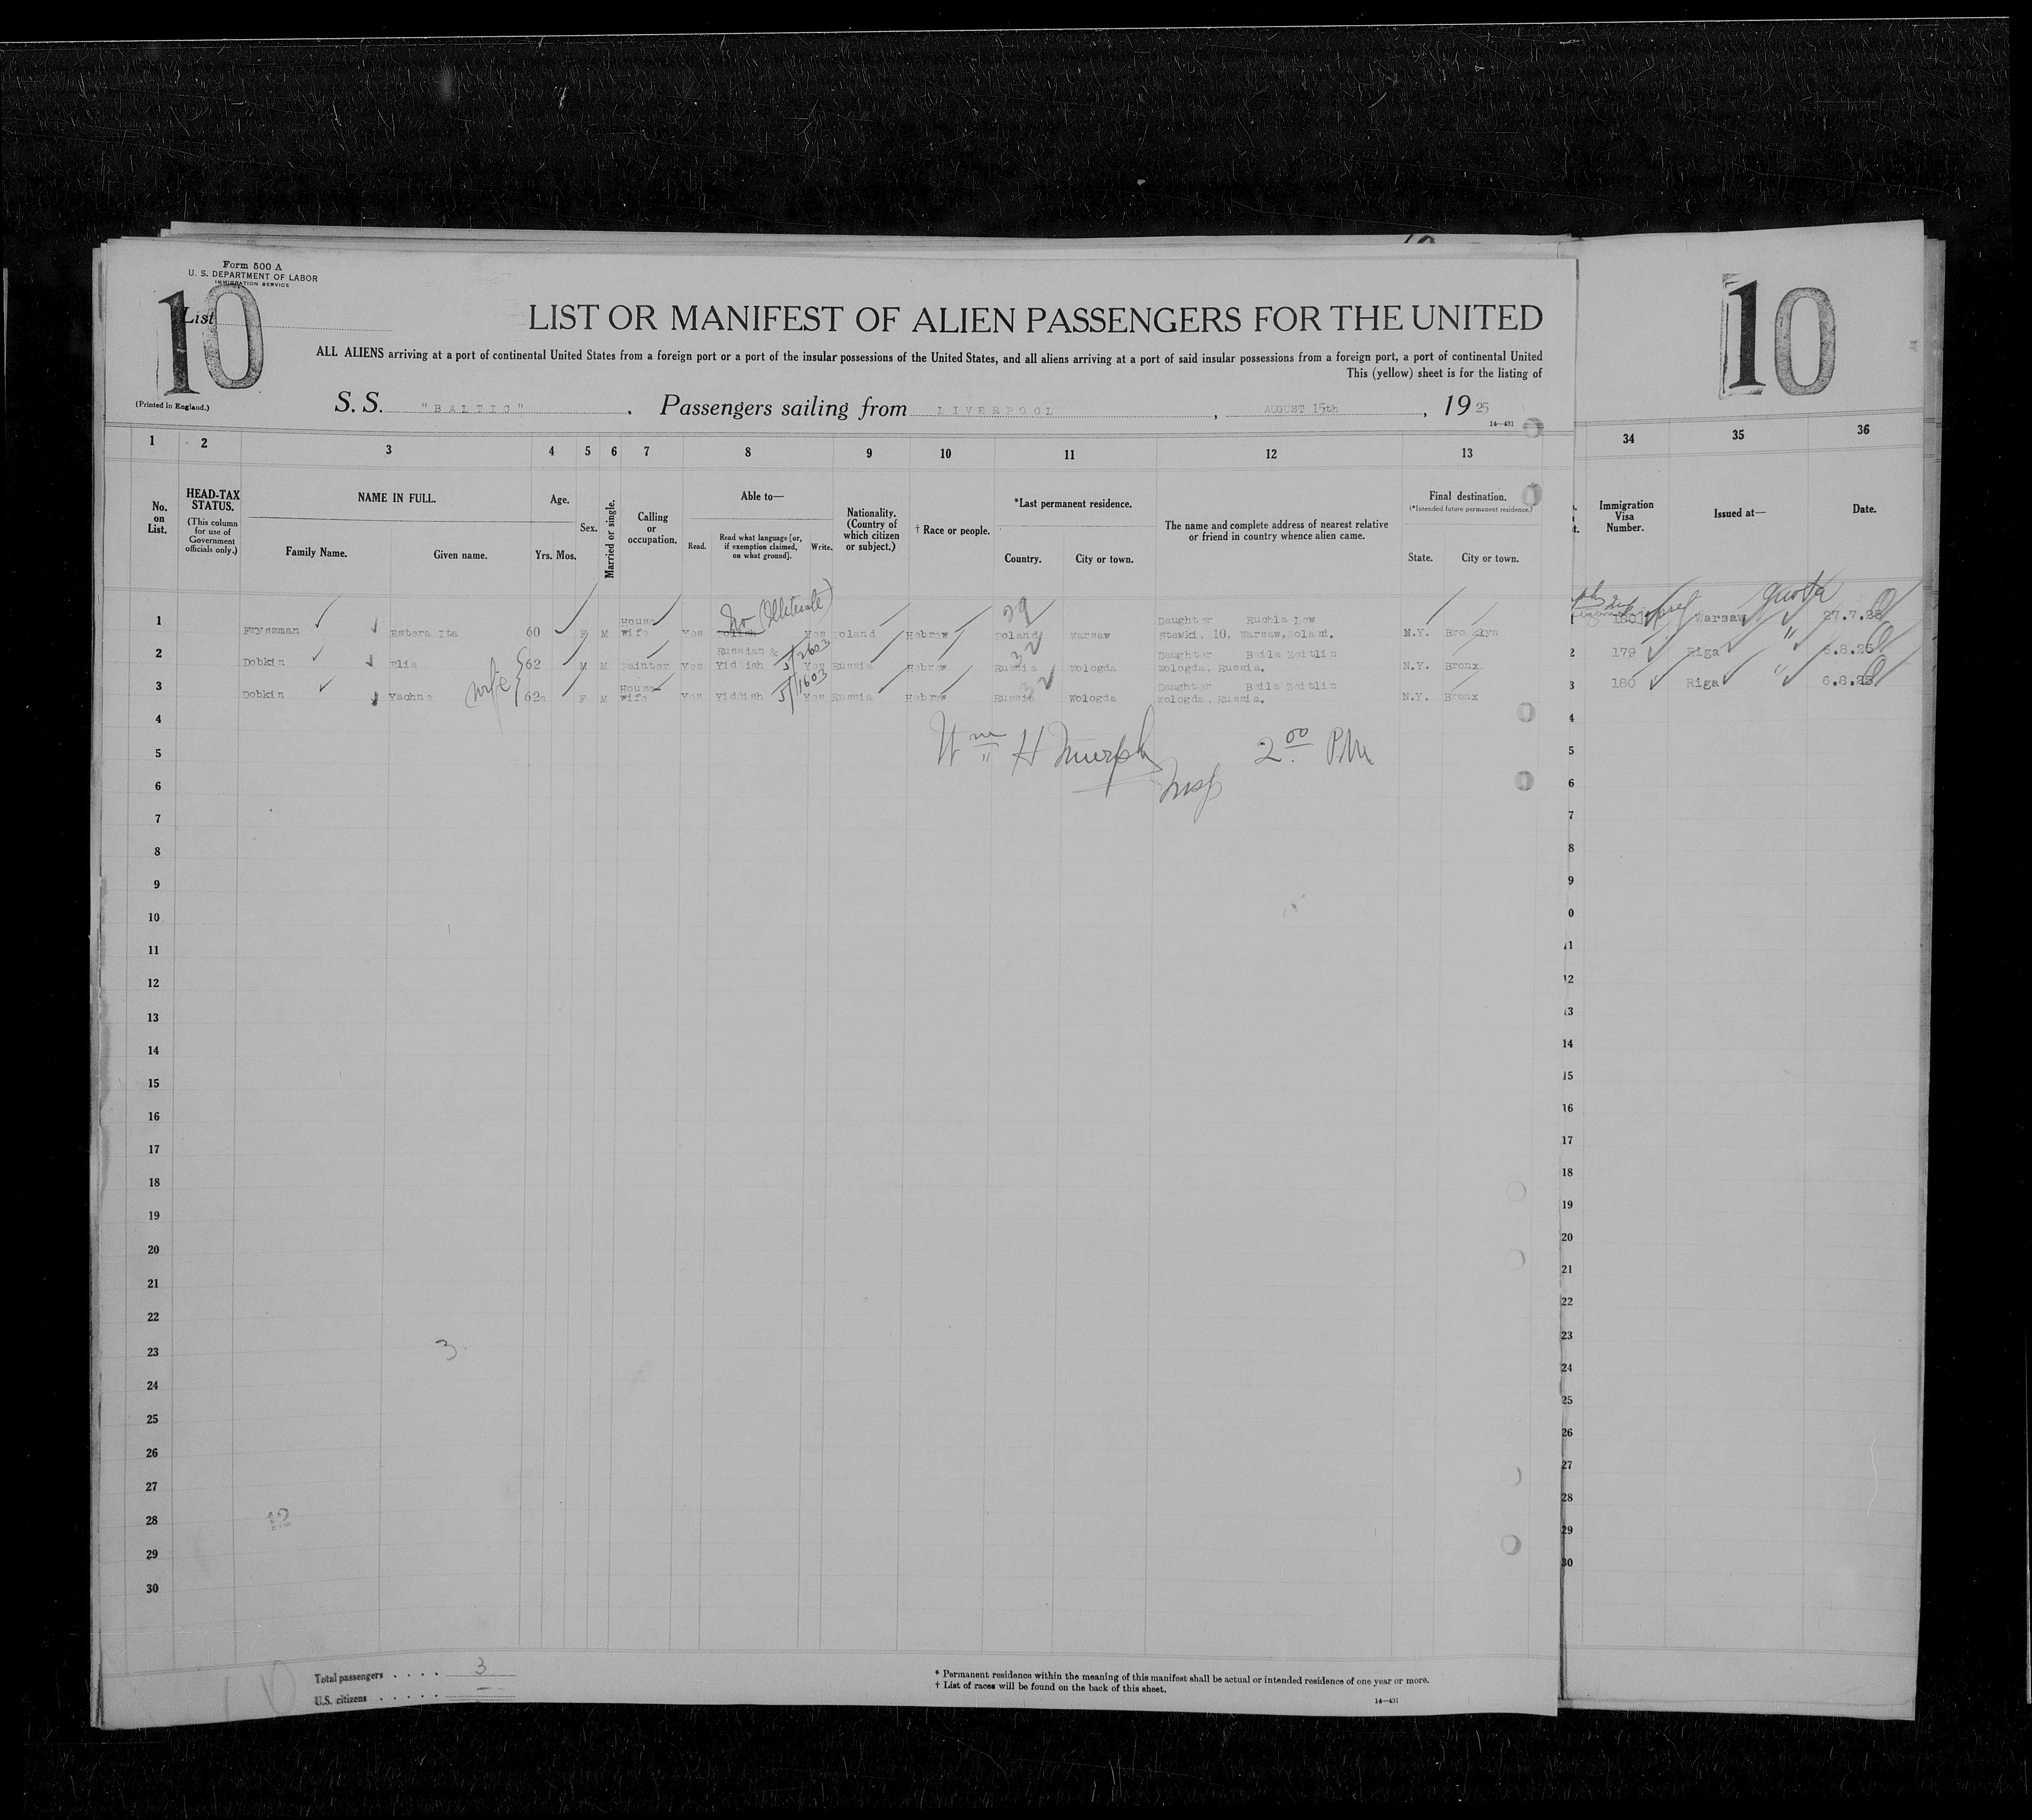 Form 500 A
U. S. DEPARTMENT OF LABOR
IMMIGRATION SERVICE
List
10
10
LIST OR MANIFEST OF ALIEN PASSENGERS FOR THE UNITED
ALL ALIENS arriving at a port of continental United States from a foreign port or a port of the insular possessions of the United States, and all aliens arriving at a port of said insular possessions from a foreign port, a port of continental United
This (yellow) sheet is for the listing of
(Printed in England.)
S. S. "BALTIC", Passengers sailing from LIVERPOOL, AUGUST 15th, 1925
14—431
1 2 3 4 5 6 7 8 9 10 11 12 13 34 35 36
No. on List.
HEAD-TAX STATUS.
(This column for use of Government officials only.)
NAME IN FULL.
Family Name. Given name.
Age.
Yrs. Mos.
Sex.
Married or single.
Calling or occupation.
Able to—
Read. Read what language [or, if exemption claimed, on what ground]. Write.
Nationality. (Country of which citizen or subject.)
† Race or people.
*Last permanent residence.
Country. City or town.
The name and complete address of nearest relative or friend in country whence alien came.
Final destination.
(*Intended future permanent residence.)
State. City or town.
Immigration Visa Number.
Issued at—
Date.
No (Illiterate) 29 quota
1 Fryszman Estera Ita 60 F M House wife Yes Polish Yes Poland Hebrew Poland Warsaw Daughter Ruchla Lew Stawki, 10, Warsaw, Poland. N.Y. Brooklyn 180 Warsaw 27.7.25
2 Dobkin Elia 62 M M Painter Yes Russian & Yiddish 5/2603 Yes Russia Hebrew 32 Russia Wologda Daughter Beila Zeitlin Wologda, Russia. N.Y. Bronx 179 Riga " 6.8.25
3 Dobkin Yachne wife 62 F M House wife Yes Yiddish 5/1603 Yes Russia Hebrew 32 Russia Wologda Daughter Beila Zeitlin Wologda, Russia. N.Y. Bronx 180 Riga " 6.8.25
4
5 Wm H Murphy 2.00 PM
6 Insp
7
8
9
10
11
12
13
14
15
16
17
18
19
20
21
22
23 3
24
25
26
27
28 12
29
30
Total passengers . . . . 3
U.S. citizens . . . . . —
* Permanent residence within the meaning of this manifest shall be actual or intended residence of one year or more.
† List of races will be found on the back of this sheet.
14—431